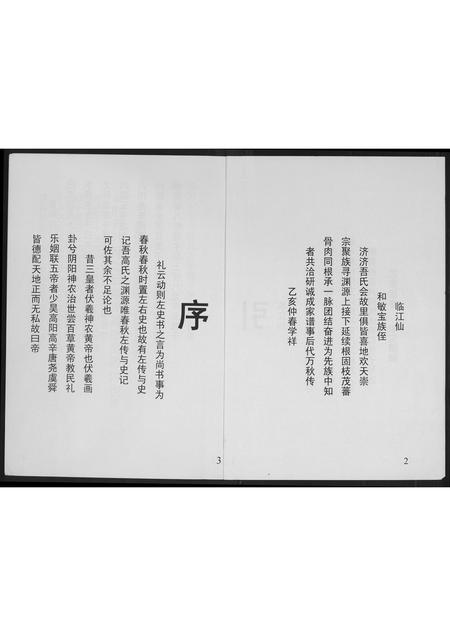 临江仙
和敏宝族侄
济济吾氏会故里俱皆喜地欢天崇
宗聚族寻渊源上接下延续根固枝茂蕃
骨肉同根承一脉团结奋进为先族中知
者共洽研诚成家谱事后代万秋传
乙亥仲春学祥
2
序
礼云动则左史书之言为尚书事为
春秋春秋时置左右史也故有左传与史
记吾高氏之渊源唯春秋左传与史记
可佐其余不足论也
昔三皇者伏羲神农黄帝也伏羲画
卦兮阴阳神农治世尝百草黄帝教民礼
乐姻联五帝者少昊高阳高辛唐尧虞舜
皆德配天地正而无私故曰帝
3